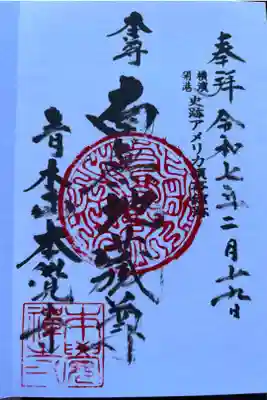 奉拝 令和七年二月十九日
横濱
開港
史跡アメリカ領事館跡
本尊
南無地蔵
青木山本覺